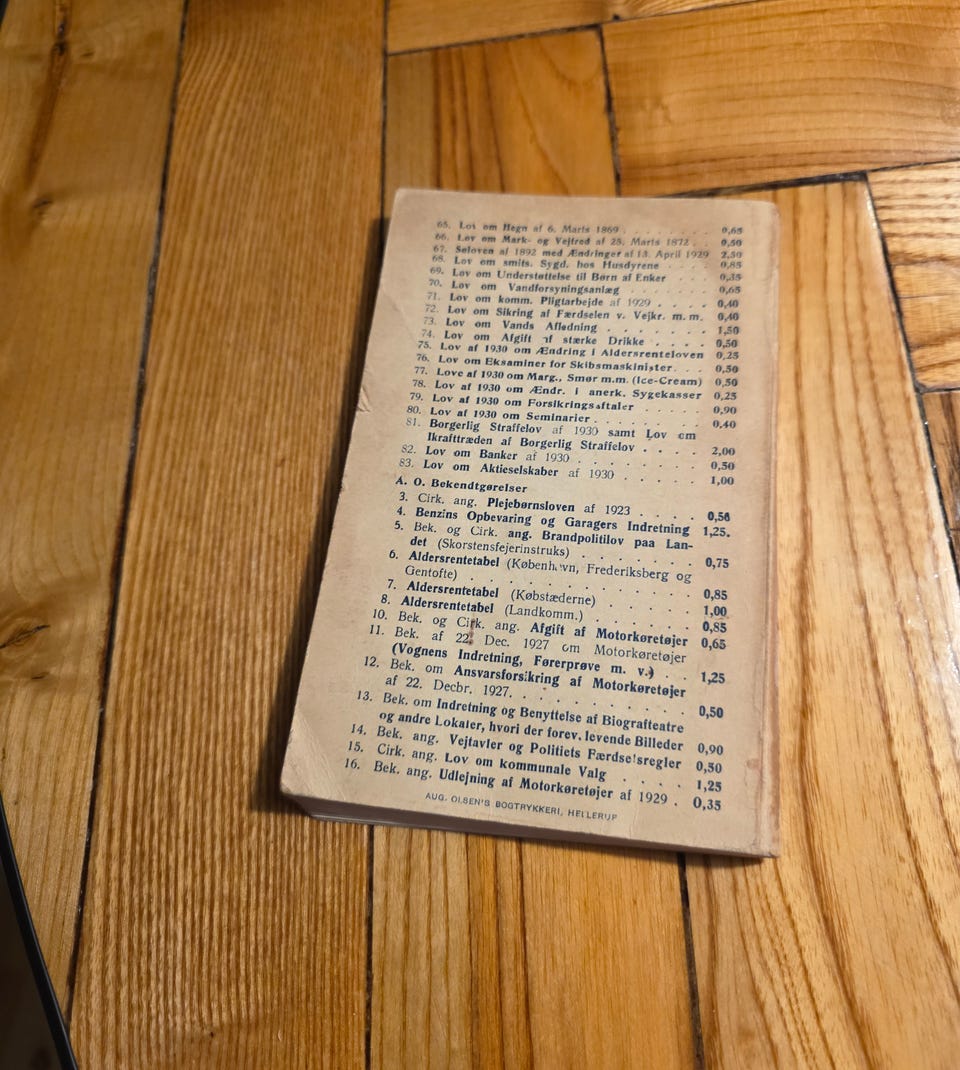 65. Lov om Hegn af 6. Marts 1869 . . . . . . . . 0,65
66. Lov om Mark- og Vejfred af 25. Marts 1872 . . . 0,50
67. Søloven af 1892 med Ændringer af 13. April 1929 2,50
68. Lov om smits. Sygd. hos Husdyrene . . . . . 0,85
69. Lov om Understøttelse til Børn af Enker . . . . 0,35
70. Lov om Vandforsyningsanlæg . . . . . . . 0,65
71. Lov om komm. Pligtarbejde af 1929 . . . . 0,40
72. Lov om Sikring af Færdselen v. Vejkr. m. m. 0,40
73. Lov om Vands Afledning . . . . . . . 1,50
74. Lov om Afgift af stærke Drikke . . . . 0,50
75. Lov af 1930 om Ændring i Aldersrenteloven 0,25
76. Lov om Eksaminer for Skibsmaskinister . . . 0,50
77. Love af 1930 om Marg., Smør m.m. (Ice-Cream) 0,50
78. Lov af 1930 om Ændr. i anerk. Sygekasser 0,25
79. Lov af 1930 om Forsikringsaftaler . . . . . . 0,90
80. Lov af 1930 om Seminarier . . . . . . . . 0,40
81. Borgerlig Straffelov af 1930 samt Lov om
Ikrafttræden af Borgerlig Straffelov . . . . 2,00
82. Lov om Banker af 1930 . . . . . . . . 0,50
83. Lov om Aktieselskaber af 1930 . . . . . 1,00
A. O. Bekendtgørelser
3. Cirk. ang. Plejebørnsloven af 1923 . . . . 0,50
4. Benzins Opbevaring og Garagers Indretning 1,25.
5. Bek. og Cirk. ang. Brandpolitilov paa Lan-
det (Skorstensfejerinstruks) . . . . . . . 0,75
6. Aldersrentetabel (København, Frederiksberg og
Gentofte) . . . . . . . . . . . 0,85
7. Aldersrentetabel (Købstæderne) . . . . . . 1,00
8. Aldersrentetabel (Landkomm.) . . . . . . 0,85
10. Bek. og Cirk. ang. Afgift af Motorkøretøjer 0,65
11. Bek. af 22. Dec. 1927 om Motorkøretøjer
(Vognens Indretning, Førerprøve m. v.) . . 1,25
12. Bek. om Ansvarsforsikring af Motorkøretøjer
af 22. Decbr. 1927. . . . . . . . . . 0,50
13. Bek. om Indretning og Benyttelse af Biografteatre
og andre Lokaler, hvori der forev. levende Billeder 0,90
14. Bek. ang. Vejtavler og Politiets Færdselsregler 0,50
15. Cirk. ang. Lov om kommunale Valg . . . . 1,25
16. Bek. ang. Udlejning af Motorkøretøjer af 1929 . 0,35
AUG. OLSEN'S BOGTRYKKERI, HELLERUP